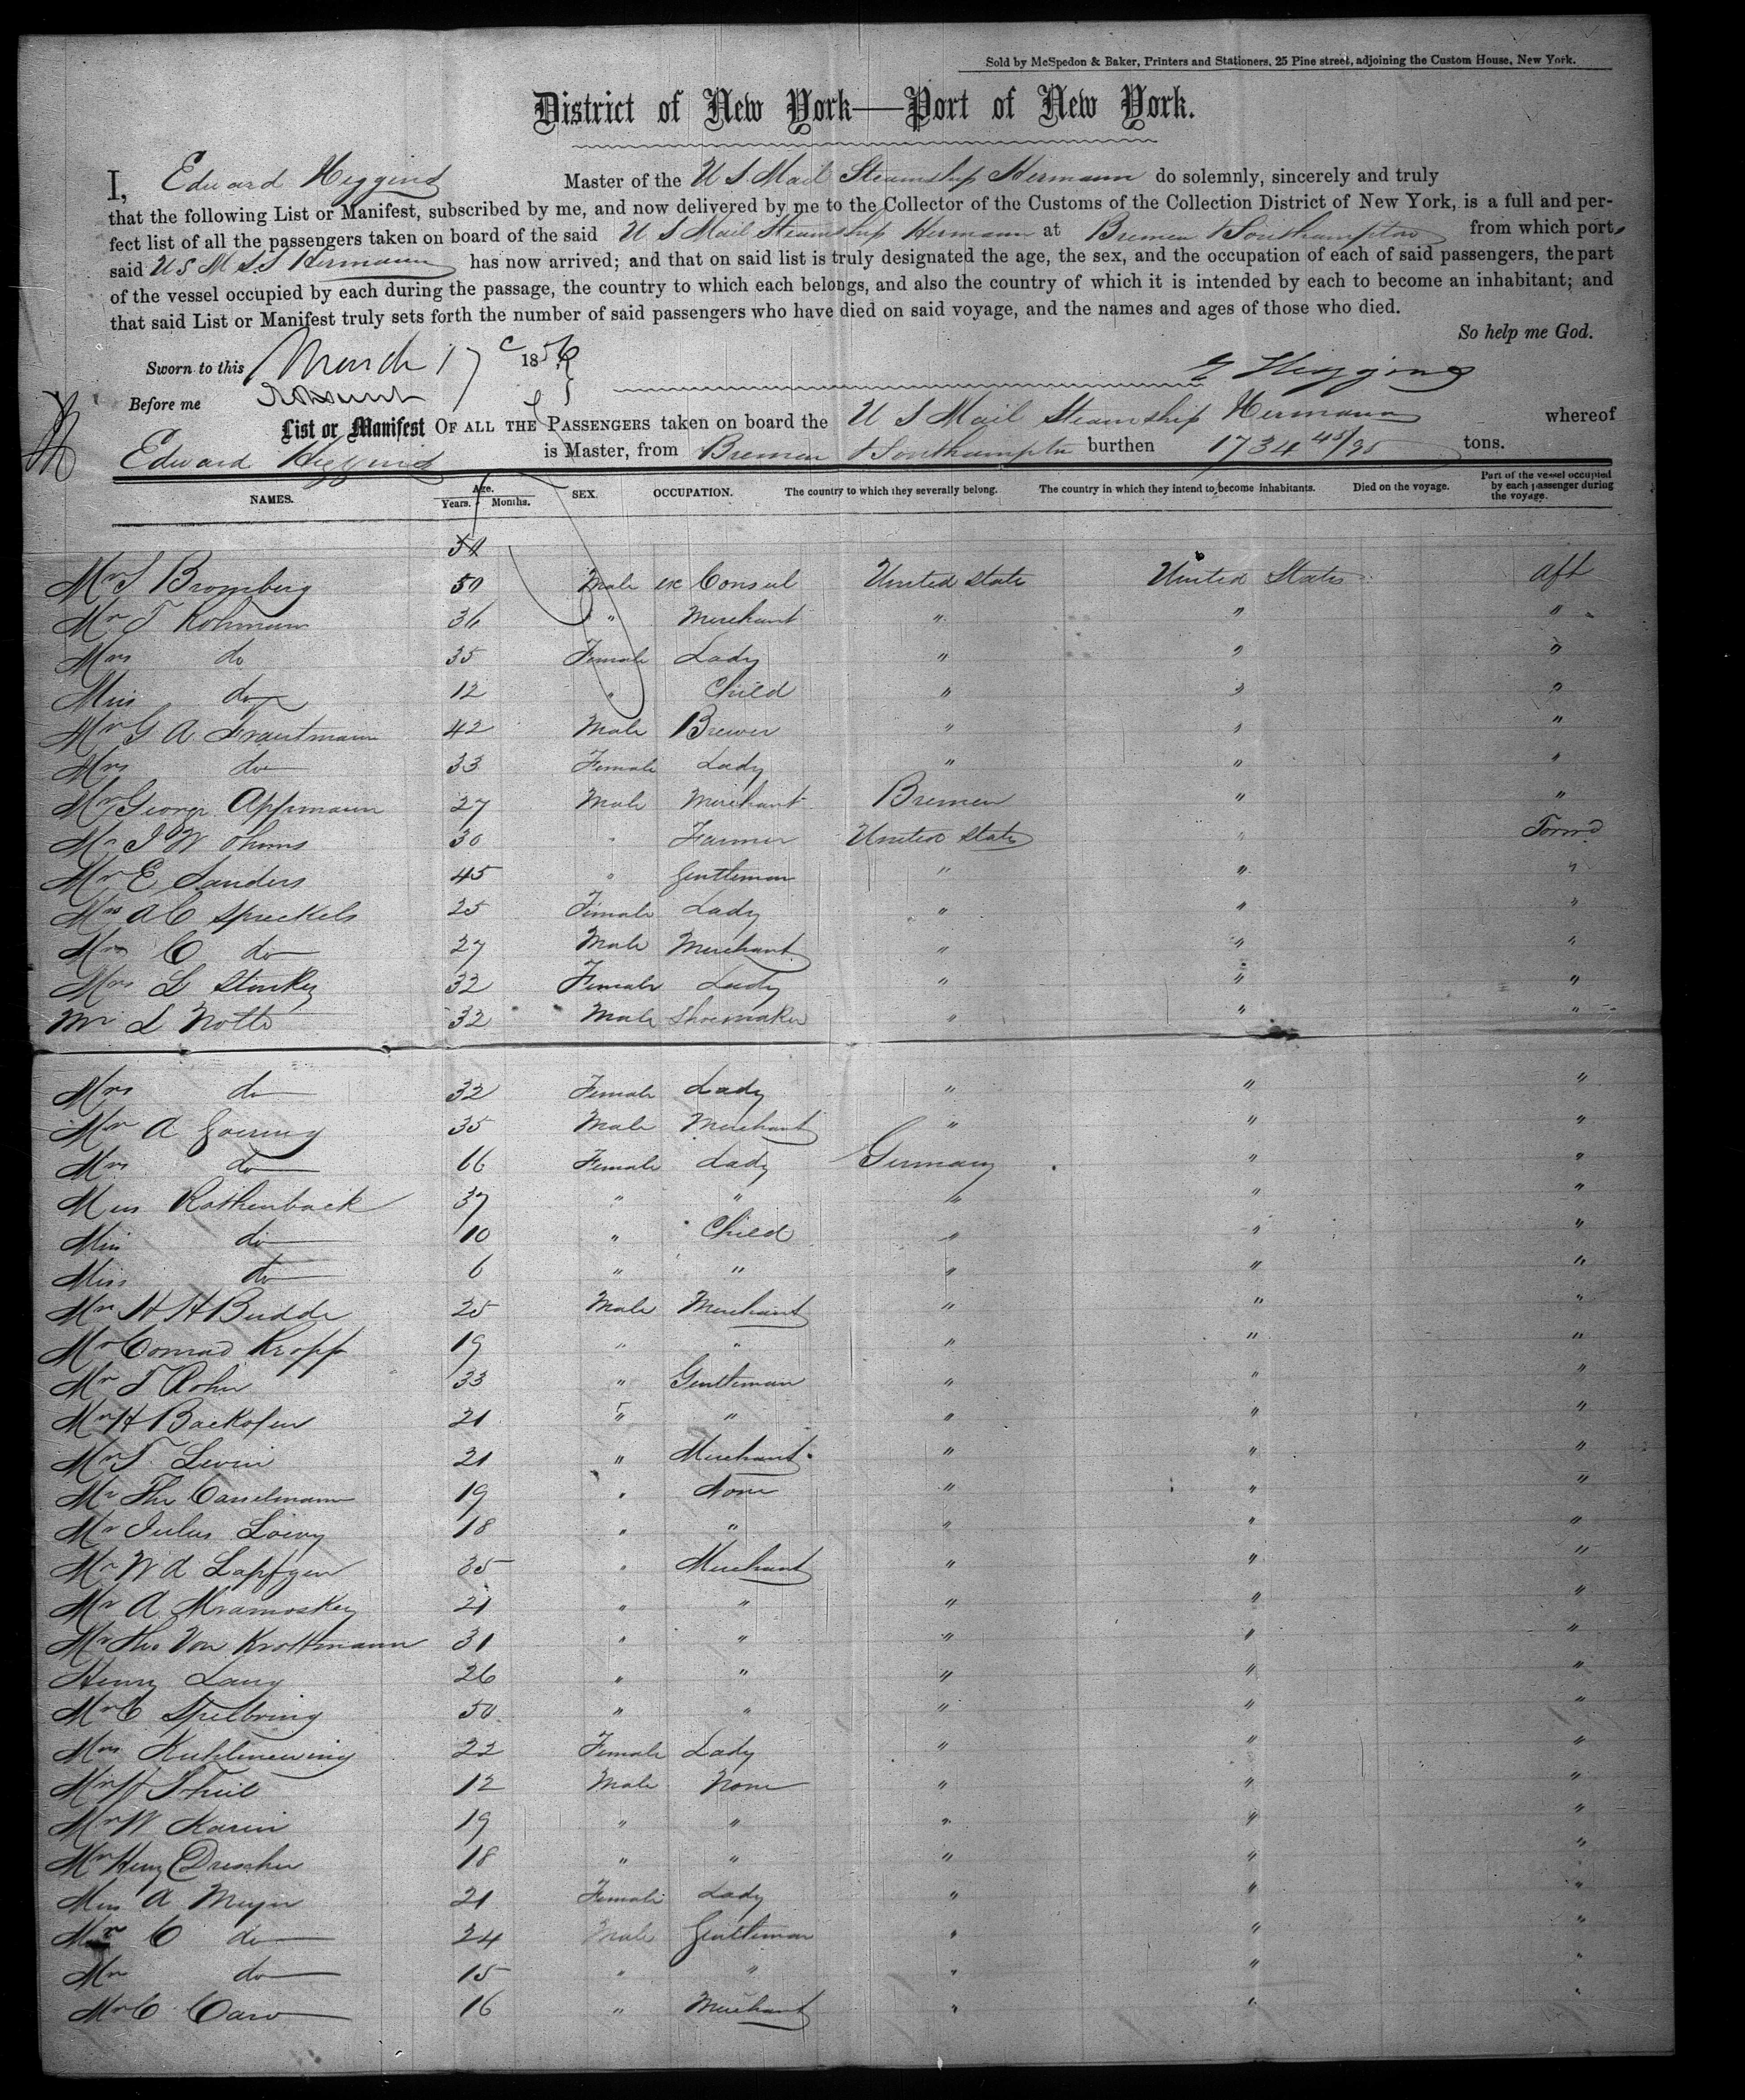 Sold by McSpedon & Baker, Printers and Stationers, 25 Pine street, adjoining the Custom House, New York.
District of New York—Port of New York.
I, Edward Higgins Master of the U S Mail Steamship Hermann do solemnly, sincerely and truly
that the following List or Manifest, subscribed by me, and now delivered by me to the Collector of the Customs of the Collection District of New York, is a full and per-
fect list of all the passengers taken on board of the said U S Mail Steamship Hermann at Bremen & Southampton from which port
said U S M S.S Hermann has now arrived; and that on said list is truly designated the age, the sex, and the occupation of each of said passengers, the part
of the vessel occupied by each during the passage, the country to which each belongs, and also the country of which it is intended by each to become an inhabitant; and
that said List or Manifest truly sets forth the number of said passengers who have died on said voyage, and the names and ages of those who died.
So help me God.
Sworn to this March 17 1856
E Higgins
Before me
List or Manifest OF ALL THE PASSENGERS taken on board the U S Mail Steamship Hermann whereof
Edward Higgins is Master, from Bremen & Southampton burthen 1734 45/95 tons.
NAMES. Age. Years. Months. SEX. OCCUPATION. The country to which they severally belong. The country in which they intend to become inhabitants. Died on the voyage. Part of the vessel occupied by each passenger during the voyage.
Mr S Bromberg 50 Male ex Consul United States United States aft
Mr F Kohmann 36 " Merchant " " "
Mrs do 35 Female Lady " " "
Miss do 12 " Child " " "
Mr G A Trautmann 42 Male Brewer " " "
Mrs do 33 Female Lady " " "
Mr George Appmann 27 Male Merchant Bremen " "
Mr J W Ohms 30 " Farmer United States " Forw'd
Mr E Sanders 45 " Gentleman " " "
Mrs A C Spreckels 25 Female Lady " " "
Mr C do 27 Male Merchant " " "
Mrs L Stankey 32 Female Lady " " "
Mr L Notte 32 Male Shoemaker " " "
Mrs do 32 Female Lady " " "
Mr A Goering 35 Male Merchant " " "
Mrs do 66 Female Lady Germany " "
Mrs Rothenback 37 " " " " "
Miss do 10 " Child " " "
Miss do 6 " " " " "
Mr H H Budde 25 Male Merchant " " "
Mr Conrad Kropp 19 " " " " "
Mr F Rohn 33 " Gentleman " " "
Mr H Backofen 21 " " " " "
Mr F Levin 21 " Merchant " " "
Mr Thr Casselmann 19 " None " " "
Mr Julus Loewy 18 " " " " "
Mr W A 35 " Merchant " " "
Mr A Mramoskey 21 " " " " "
Mr Thr Von Krottmann 31 " " " " "
Henry Lang 26 " " " " "
Mr C Spelbring 50 " " " " "
Mrs 22 Female Lady " " "
Mr H Theil 12 Male None " " "
Mr W Karin 19 " " " " "
Mr Heny Drescher 18 " " " " "
Miss A Meyer 21 Female Lady " " "
Mr C do 24 Male Gentleman " " "
Mr do 15 " " " " "
Mr C Caro 16 " Merchant " " "